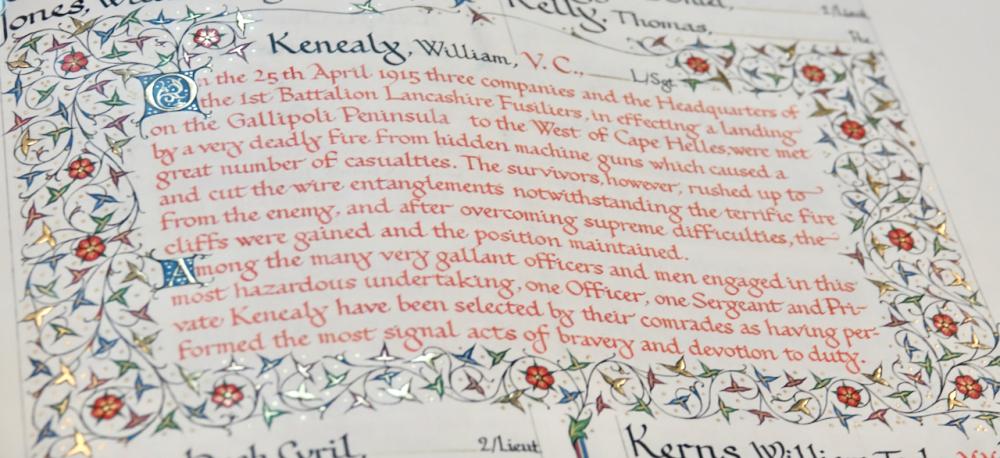 Jones,
Kelly, Thomas,
Kenealy, William, V. C., L/Sgt.
On the 25th April 1915 three companies and the Headquarters of
the 1st Battalion Lancashire Fusiliers, in effecting a landing
on the Gallipoli Peninsula to the West of Cape Helles, were met
by a very deadly fire from hidden machine guns which caused a
great number of casualties. The survivors, however, rushed up to
and cut the wire entanglements notwithstanding the terrific fire
from the enemy, and after overcoming supreme difficulties, the
cliffs were gained and the position maintained.
Among the many very gallant officers and men engaged in this
most hazardous undertaking, one Officer, one Sergeant and Pri-
vate Kenealy have been selected by their comrades as having per-
formed the most signal acts of bravery and devotion to duty.
Cyril, 2/Lieut
Kerns, William